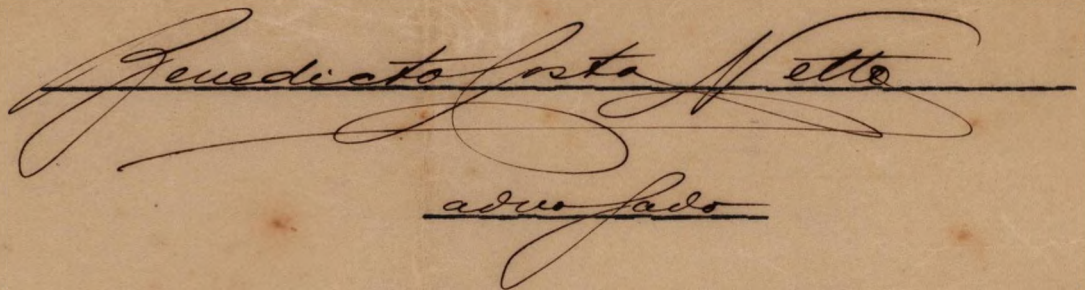 Benedicto Costa Netto
advogado